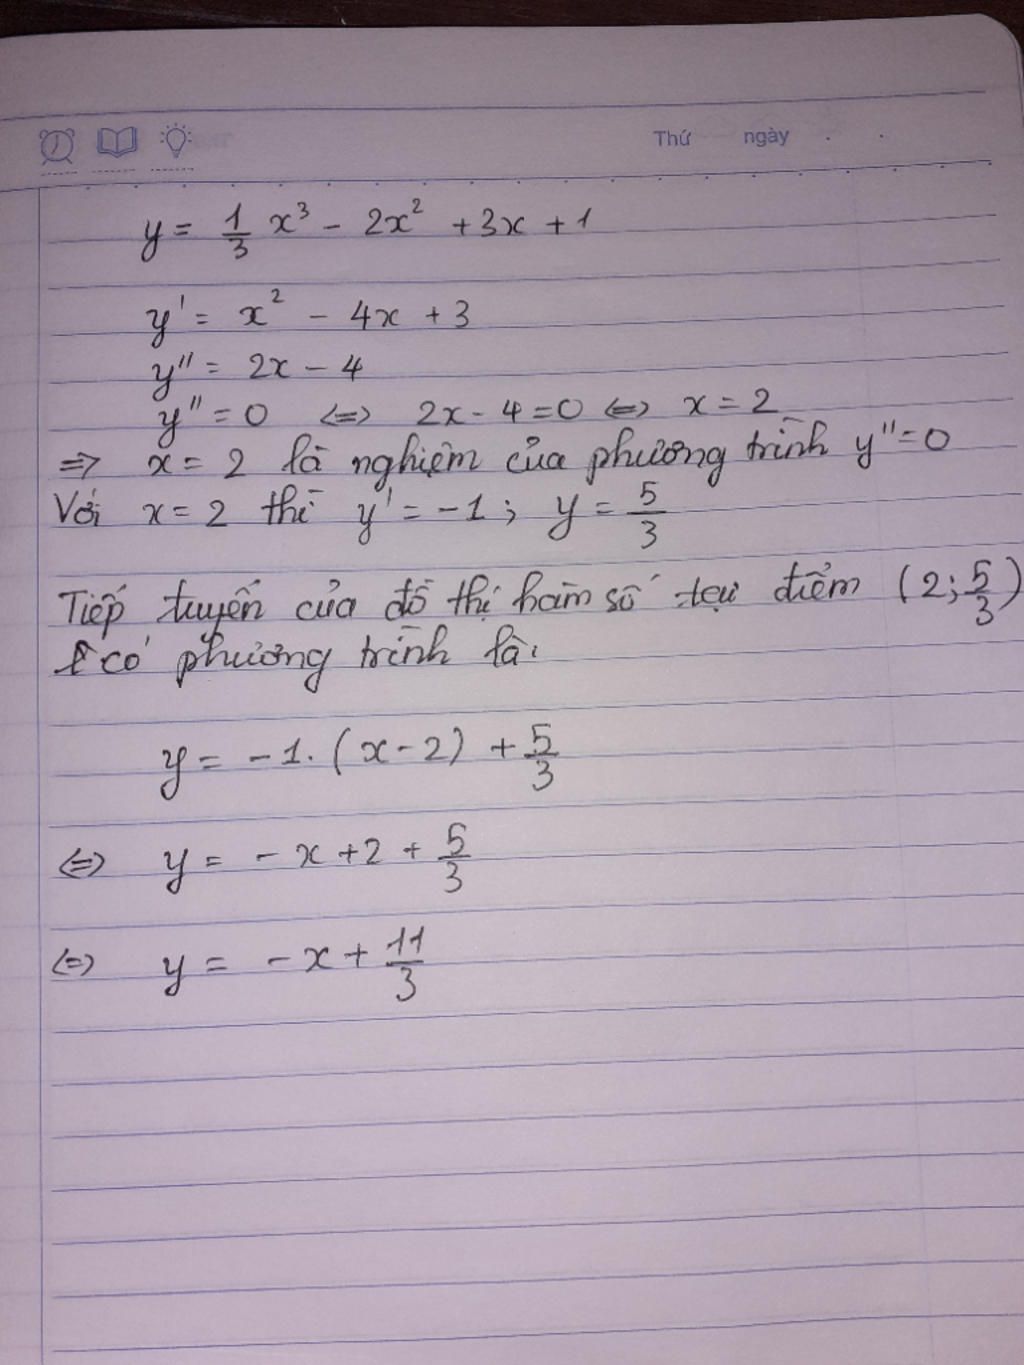 Thứ ngày
y = 1/3 x³ - 2x² + 3x + 1
y' = x² - 4x + 3
y'' = 2x - 4
y'' = 0 <=> 2x - 4 = 0 <=> x = 2
=> x = 2 là nghiệm của phương trình y'' = 0
Với x = 2 thì y' = -1; y = 5/3
Tiếp tuyến của đồ thị hàm số tại điểm (2; 5/3)
có phương trình là:
y = -1. (x - 2) + 5/3
<=> y = -x + 2 + 5/3
<=> y = -x + 11/3